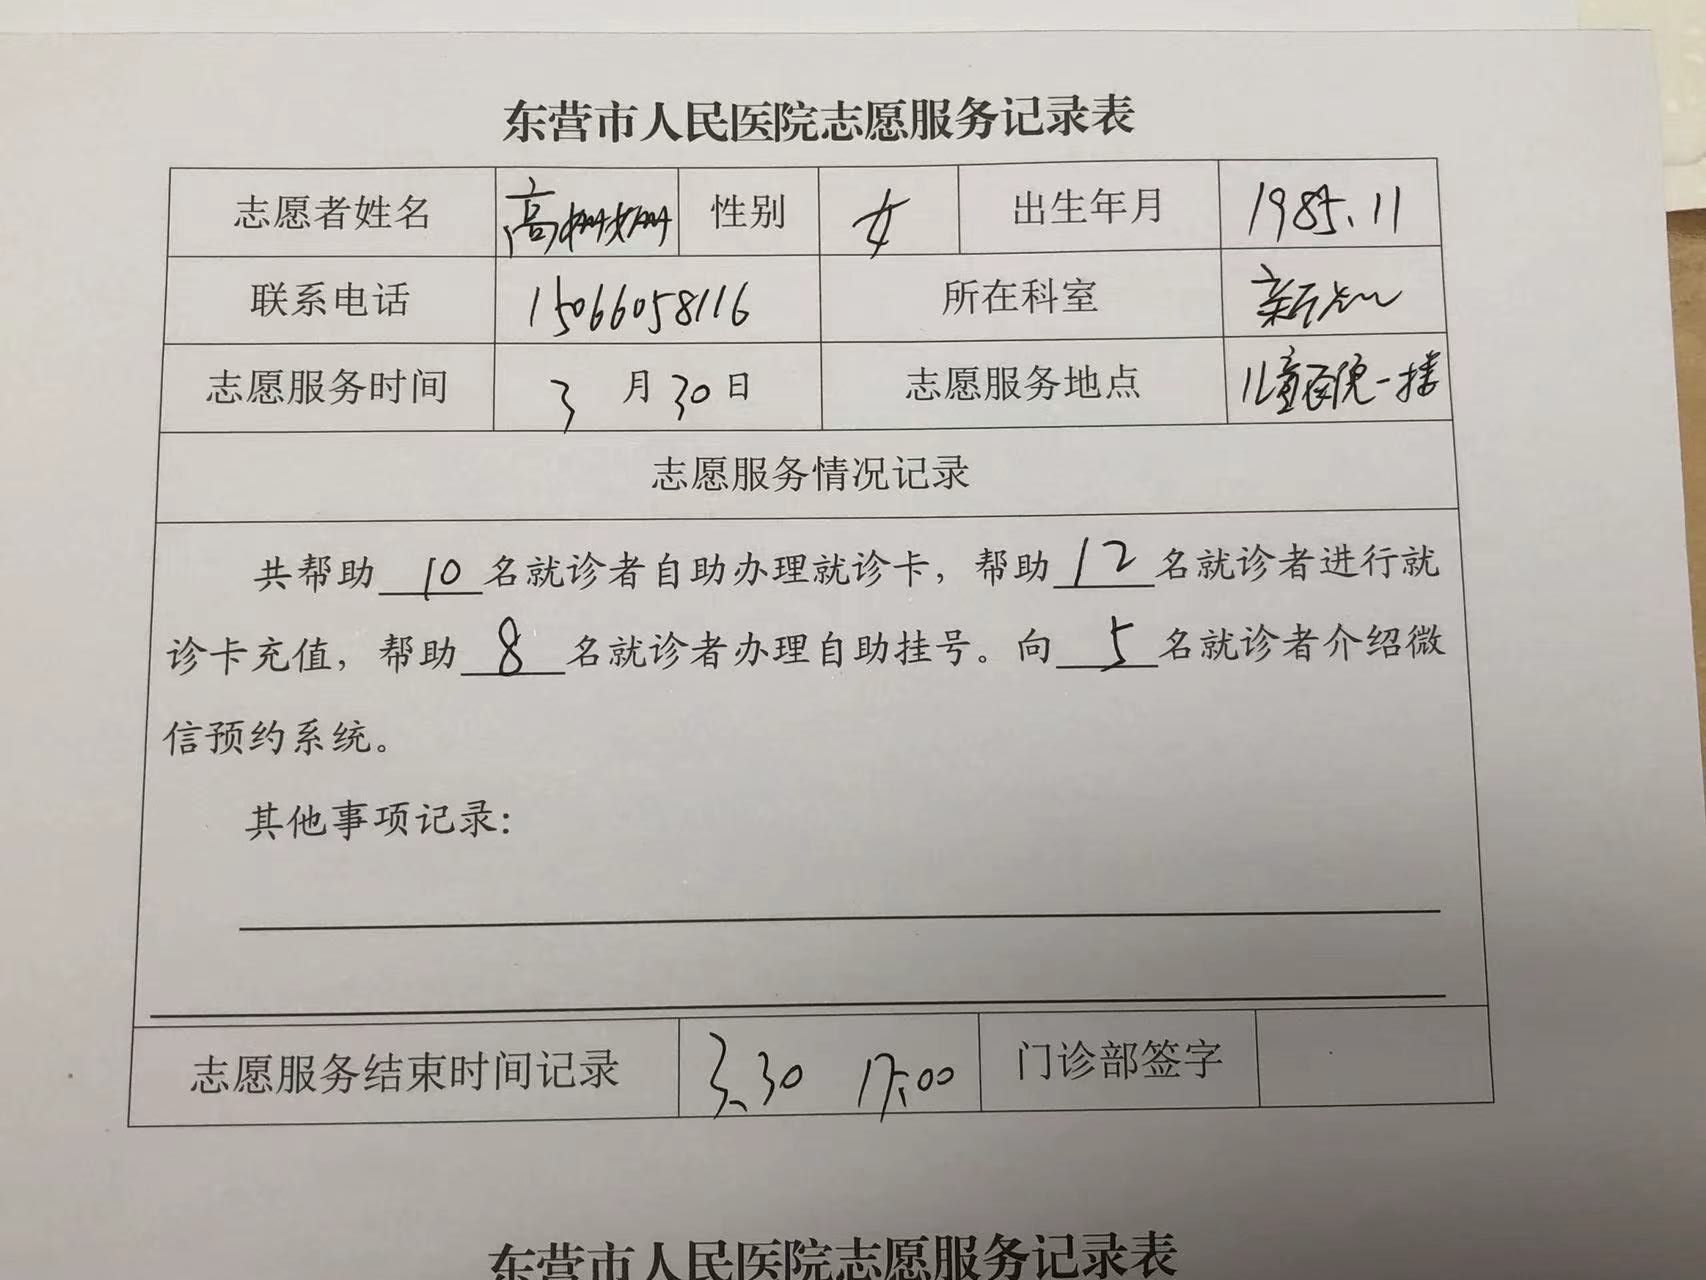 东营市人民医院志愿服务记录表
志愿者姓名 高姗姗 性别 女 出生年月 1985.11
联系电话 15066058116 所在科室
志愿服务时间 3月30日 志愿服务地点 儿童医院一楼
志愿服务情况记录
共帮助10名就诊者自助办理就诊卡，帮助12名就诊者进行就
诊卡充值，帮助8名就诊者办理自助挂号。向5名就诊者介绍微
信预约系统。
其他事项记录：
志愿服务结束时间记录 3.30 17:00 门诊部签字
东营市人民医院志愿服务记录表